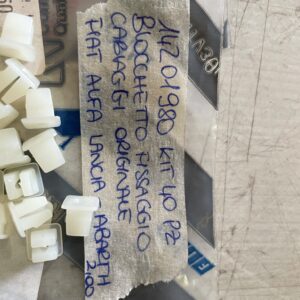 14201980 KIT 40 PZ
BLOCCHETTO FISSAGGIO
CABLAGGI ORIGINALE
FIAT ALFA LANCIA ABARTH